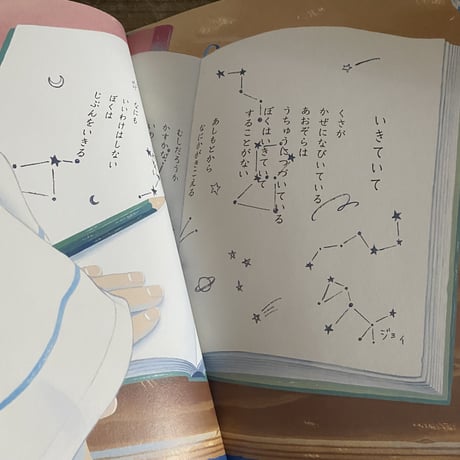 いきていて
くさが
かぜになびいている
あおぞらは
うちゅうにつづいている
ぼくはいきていて
することがない
あしもとから
なにかがきこえる
むしだろうか
かすかな
ジョイ
なにも
いいわけはしない
ぼくは
じぶんをいきる